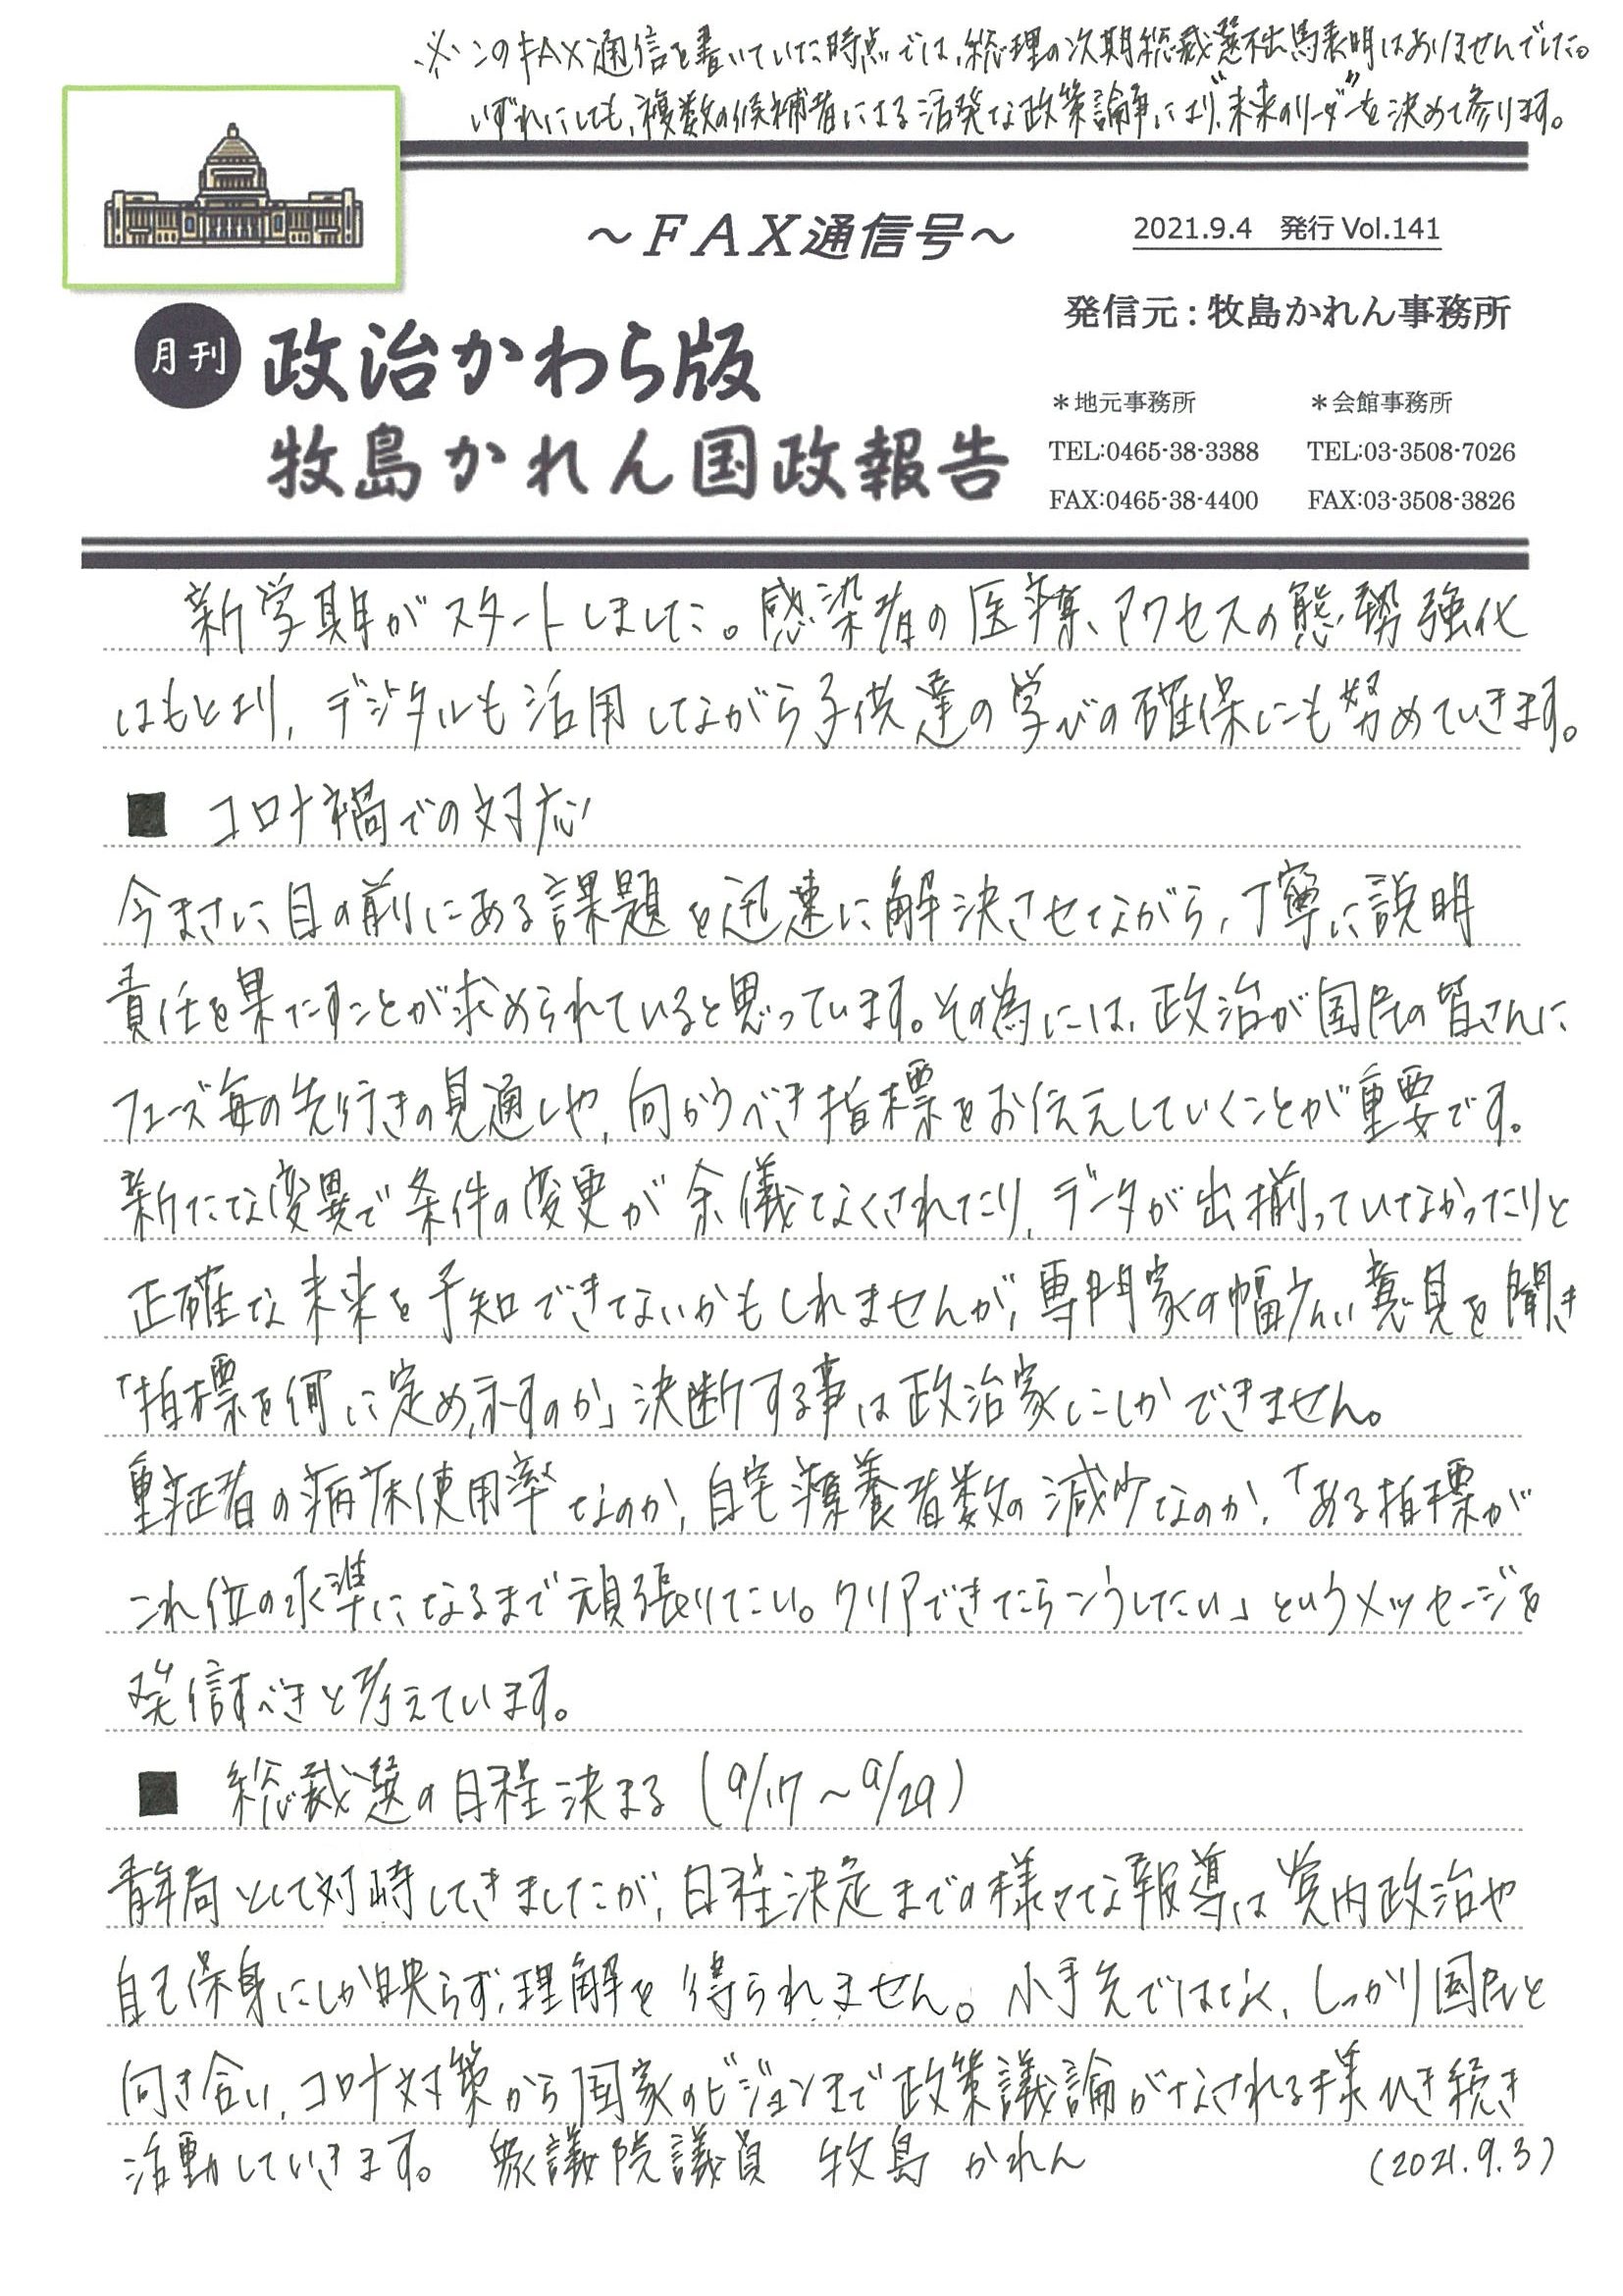 ※このFAX通信を書いていた時点では、総理の次期総裁選不出馬表明はありませんでした。
いずれにしても、複数の候補者による活発な政策論争により、"未来のリーダー"を決めて参ります。
～ＦＡＸ通信号～
2021.9.4 発行 Vol.141
発信元：牧島かれん事務所
月刊 政治かわら版
牧島かれん国政報告
＊地元事務所 ＊会館事務所
TEL:0465-38-3388 TEL:03-3508-7026
FAX:0465-38-4400 FAX:03-3508-3826
新学期がスタートしました。感染者の医療アクセスの態勢強化
はもとより、デジタルも活用しながら子供達の学びの確保にも努めていきます。
■ コロナ禍での対応
今まさに目の前にある課題を迅速に解決させながら、丁寧に説明
責任を果たすことが求められていると思っています。その為には、政治が国民の皆さんに
フェーズ毎の先行きの見通しや、向かうべき指標をお伝えしていくことが重要です。
新たな変異で条件の変更が余儀なくされたり、データが出揃っていなかったりと
正確な未来を予知できないかもしれませんが、専門家の幅広い意見を聞き
「指標を何に定め、示すのか」決断する事は政治家にしかできません。
重症者の病床使用率なのか、自宅療養者数の減少なのか、「ある指標が
これ位の水準になるまで頑張りたい。クリアできたらこうしたい」というメッセージを
発信すべきと考えています。
■ 総裁選の日程決まる (9/17～9/29)
青年局として対峙してきましたが、日程決定までの様々な報道は党内政治や
自己保身にしか映らず、理解を得られません。小手先ではなく、しっかり国民と
向き合い、コロナ対策から国家のビジョンまで政策議論がなされる様ひき続き
活動していきます。 衆議院議員 牧島かれん (2021.9.3)